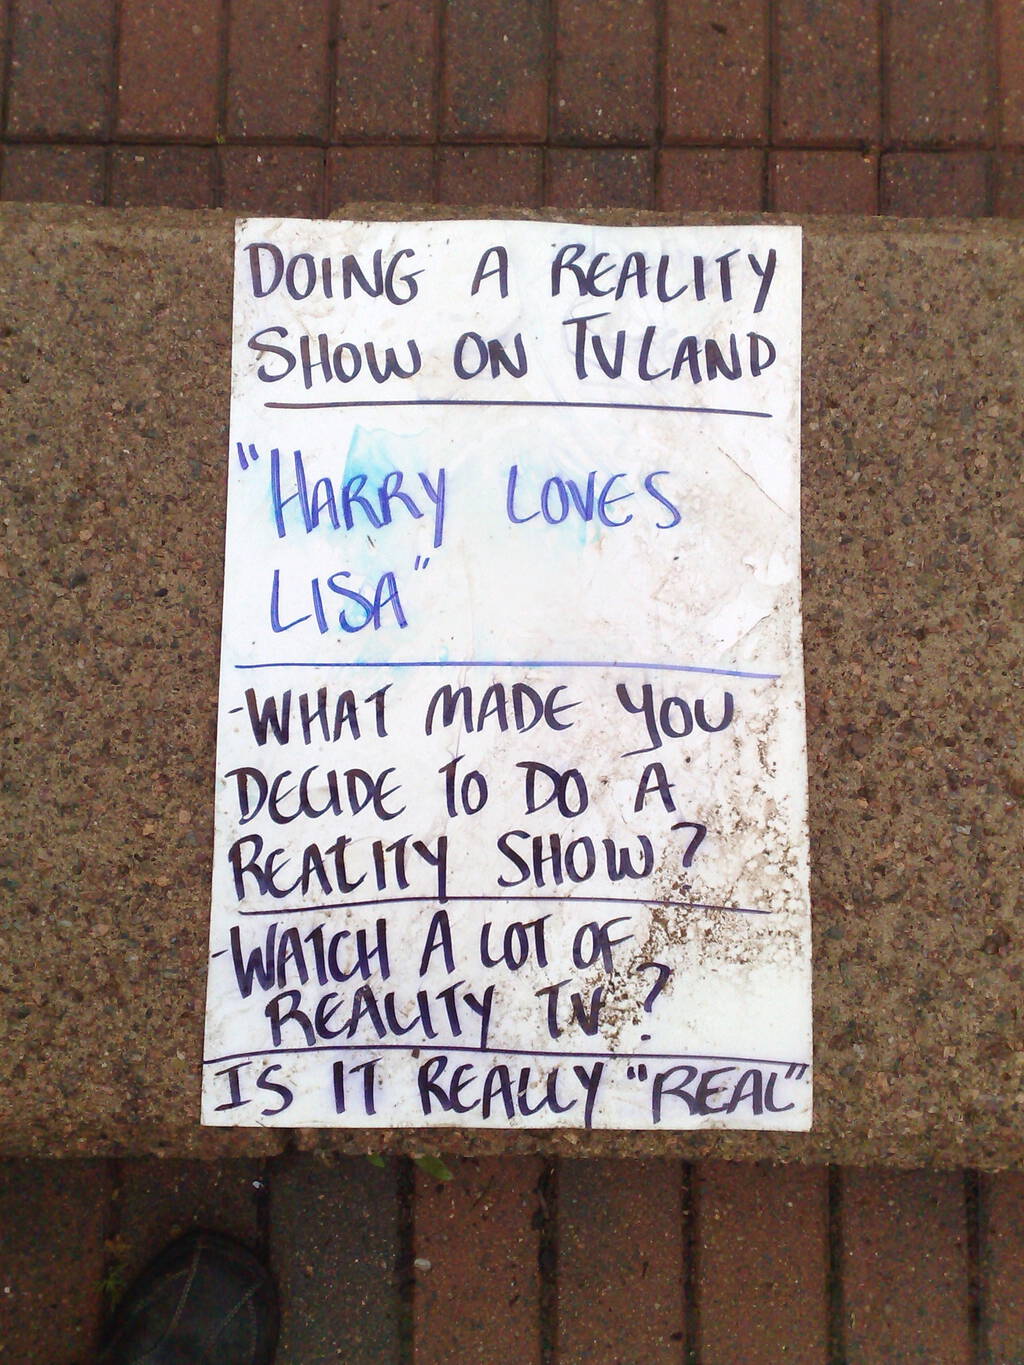 DOING A REALITY
SHOW ON TV LAND
"HARRY LOVES
LISA"
-WHAT MADE YOU
DECIDE TO DO A
REALITY SHOW?
-WATCH A LOT OF
REALITY TV?
IS IT REALLY "REAL"